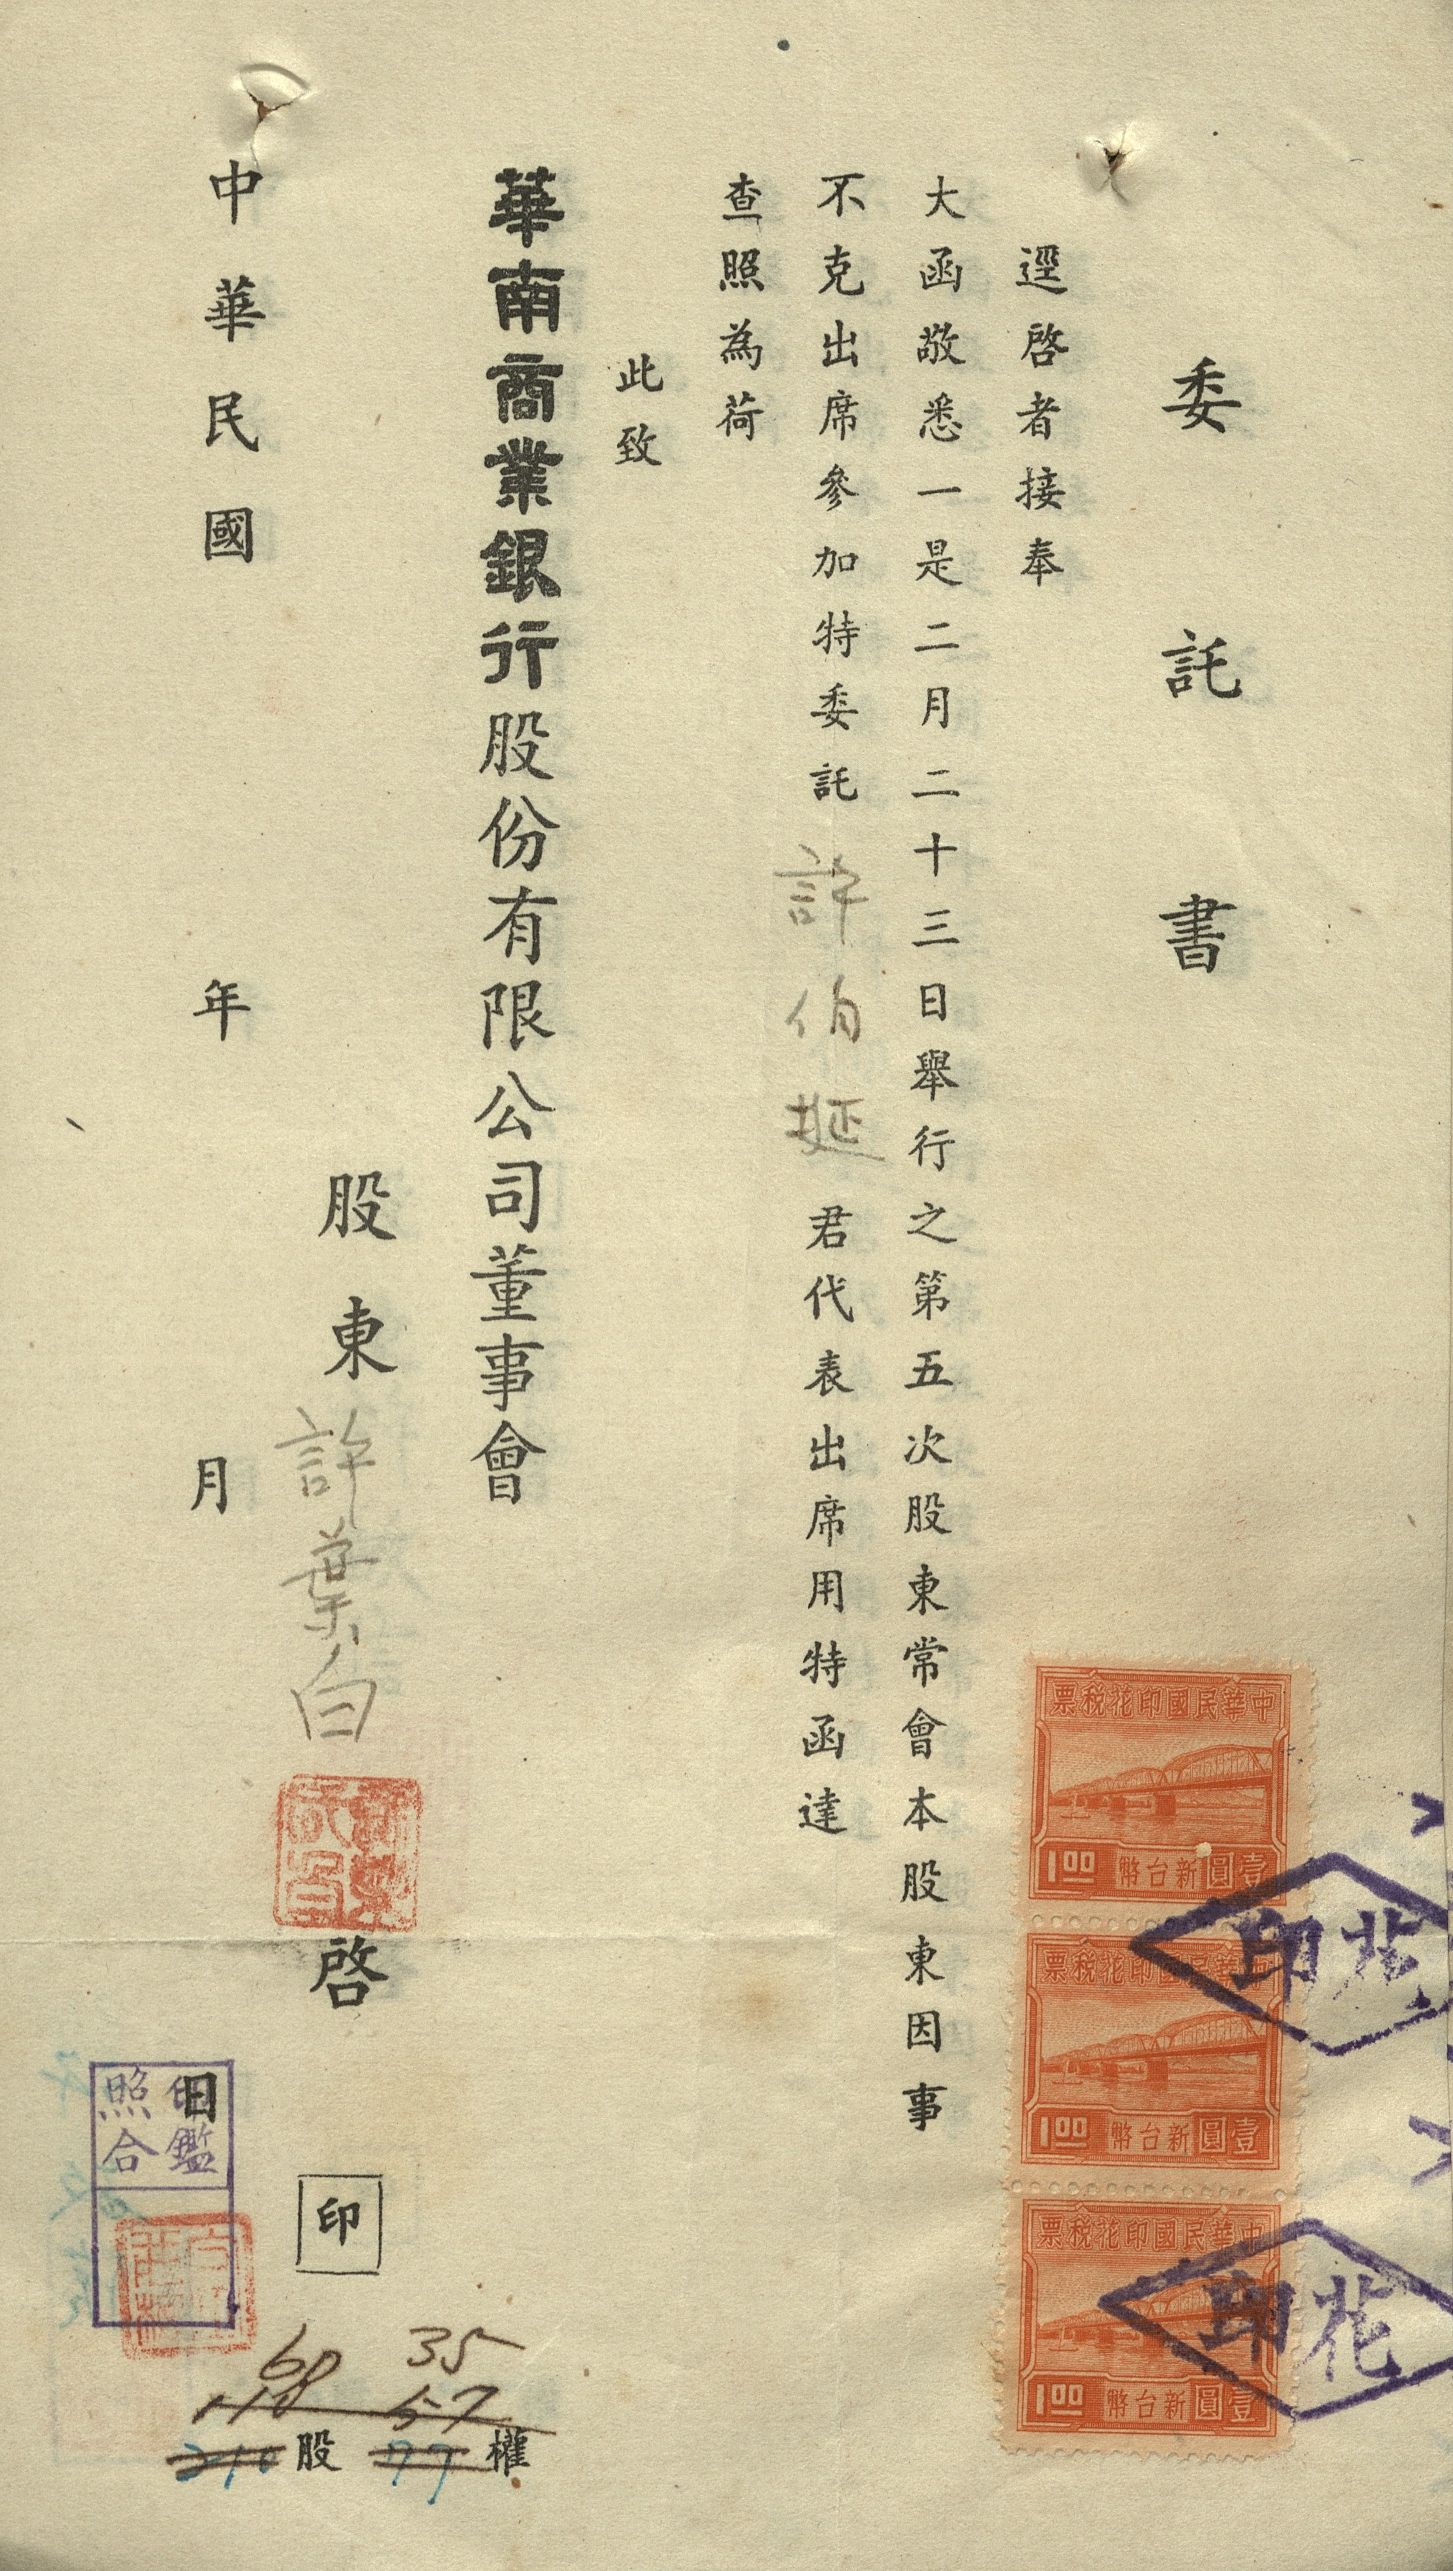 委託書
逕啓者接奉
大函敬悉一是二月二十三日舉行之第五次股東常會本股東因事
不克出席參加特委託許伯埏君代表出席用特函達
查照為荷
此致
華南商業銀行股份有限公司董事會
股東許葉白啓
印
中華民國 年 月 日
35
68
57
118
77權
210股
印鑑
照合
中華民國印花稅票
壹圓新台幣
1.00
中華民國印花稅票
壹圓新台幣
1.00
中華民國印花稅票
壹圓新台幣
1.00
花印
花印